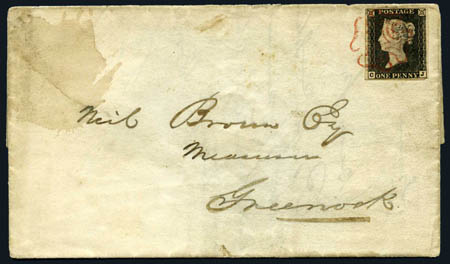 POSTAGE
C J
ONE PENNY
Neil Brown Esq
Greenock